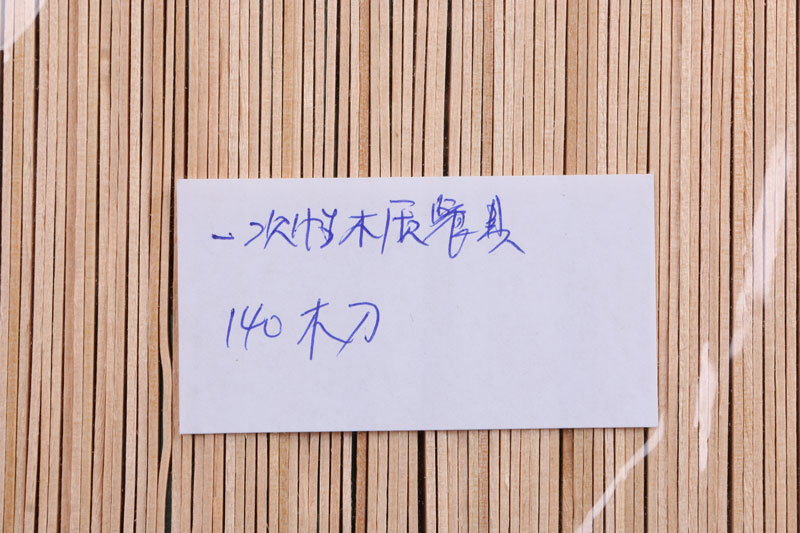 一次性木质餐具
140木刀